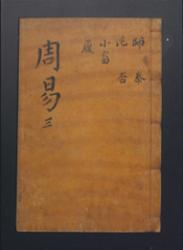 師 泰
比 否
小畜
履
周易 三